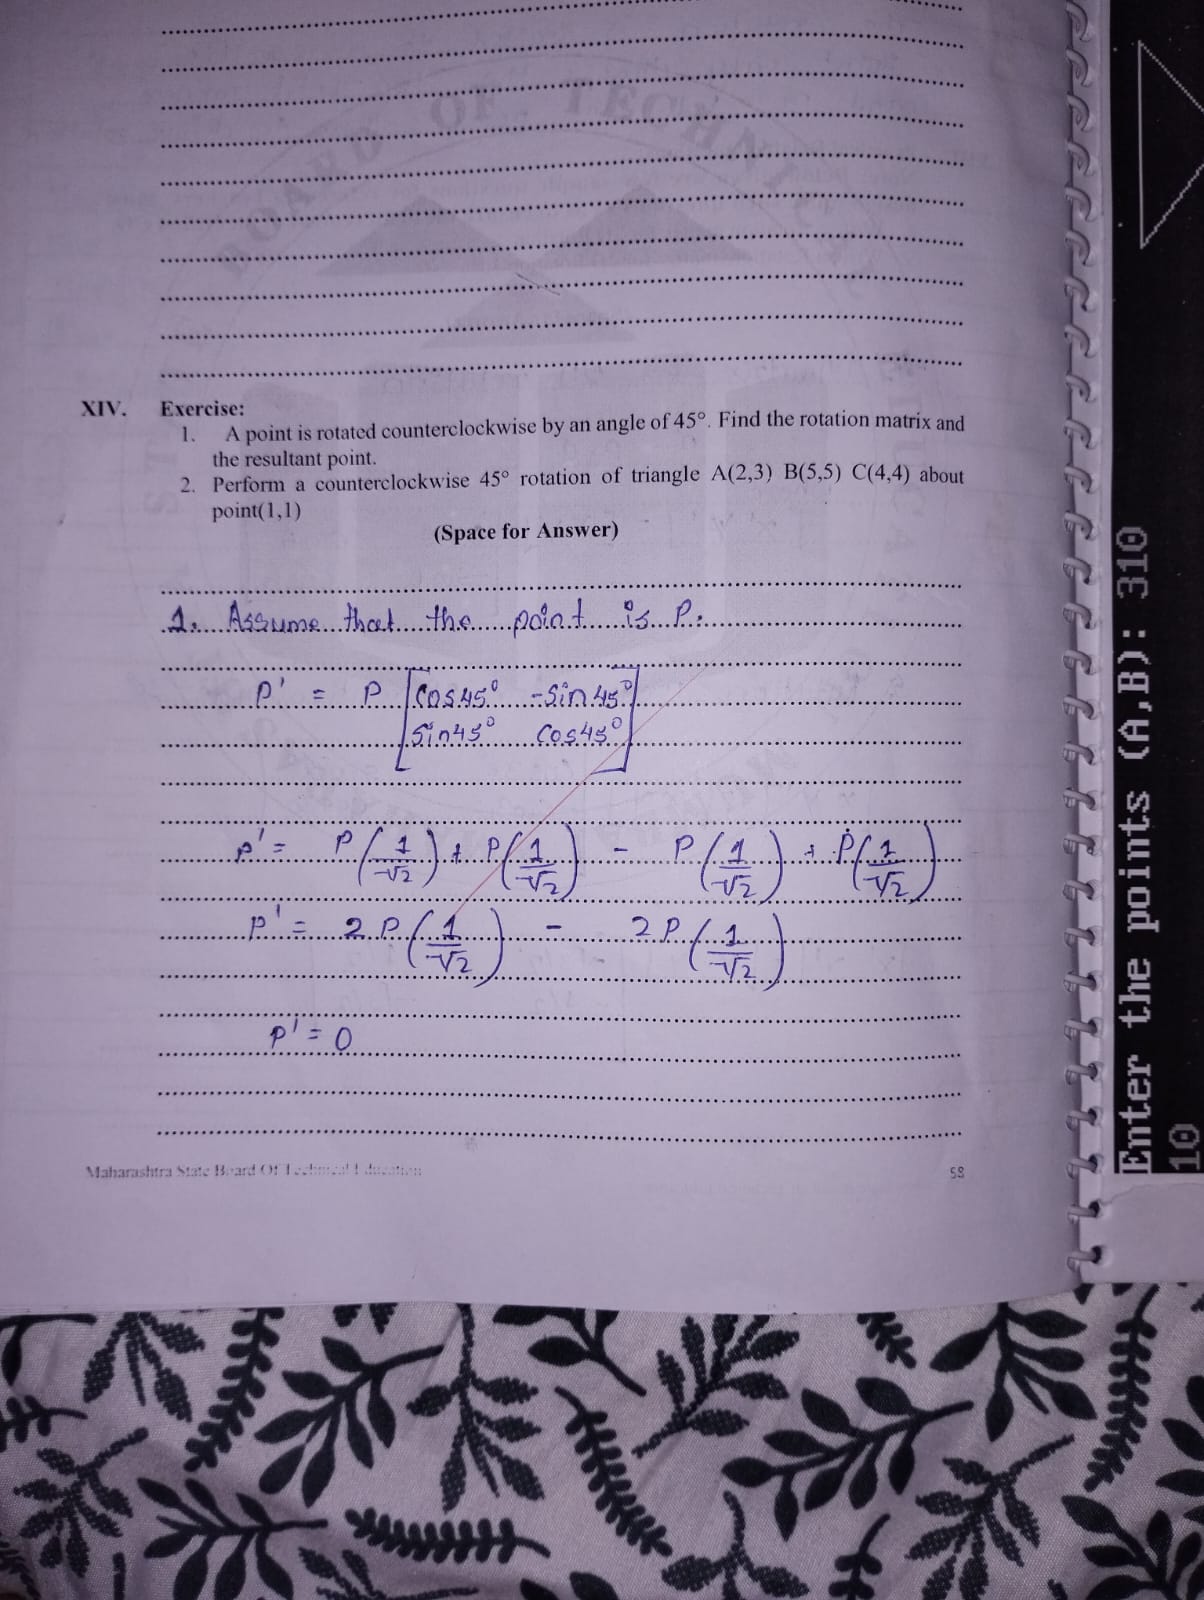 BOARD OF TECHNIC
XIV. Exercise:
1. A point is rotated counterclockwise by an angle of 45°. Find the rotation matrix and
the resultant point.
2. Perform a counterclockwise 45° rotation of triangle A(2,3) B(5,5) C(4,4) about
point(1,1)
(Space for Answer)
1. Assume that the point is P.
P' = P [cos45° -sin45°
sin45° cos45°]
P' = P(1/√2) + P(1/√2) - P(1/√2) + P(1/√2)
P' = 2P(1/√2) - 2P(1/√2)
P' = 0
Maharashtra State Board Of Technical Education
58
Enter the points (A,B): 310
10